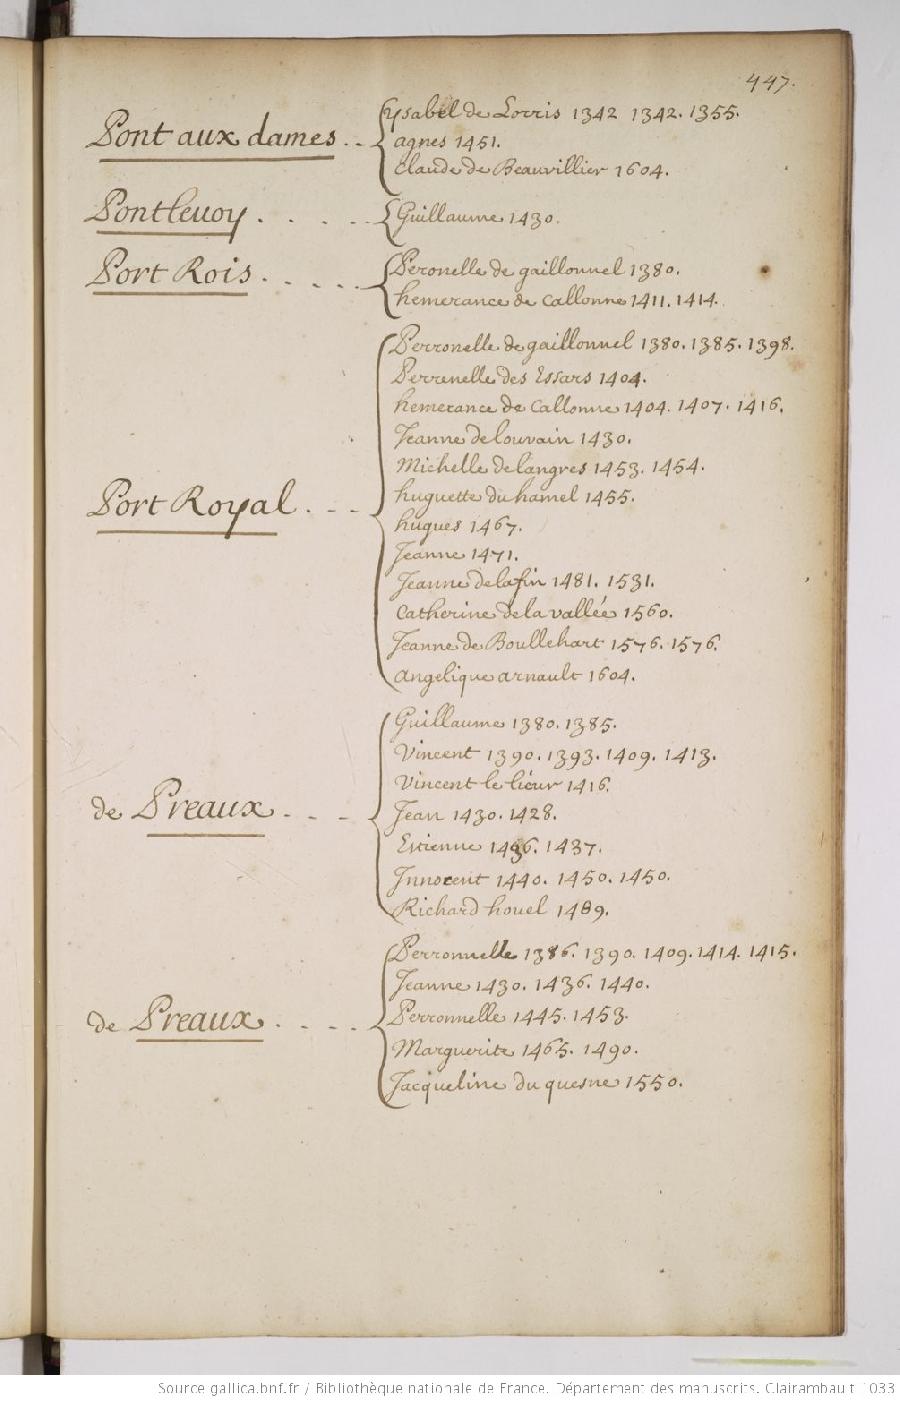 447.
Pont aux dames . . - ysabel de Lorris 1342 1342. 1355.
agnes 1451.
Claude de Beauvillier 1604.
Pontleuoy . . . . . - Guillaume 1430.
Port Rois . . . . . Peronelle de gaillonnel 1380.
hemerance de Callonne 1411. 1414.
Perronelle de gaillonnel 1380. 1385. 1398.
Perrenelle des Essars 1404.
hemerance de Callonne 1404. 1407. 1416.
Jeanne de louvain 1430.
Michelle de langres 1453. 1454.
huguette du hamel 1455.
Port Royal . - -
hugues 1467.
Jeanne 1471.
Jeanne de la fin 1481. 1531.
Catherine de la vallée 1560.
Jeanne de Boullehart 1576. 1576.
angelique arnault 1604.
Guillaume 1380. 1385.
Vincent 1390. 1393. 1409. 1413.
Vincent le liéur 1416.
de Preaux . - - - Jean 1430. 1428.
Estienne 1436. 1437.
Innocent 1440. 1450. 1450.
Richard houel 1489.
Perronnelle 1386. 1390. 1409. 1414. 1415.
Jeanne 1430. 1436. 1440.
de Preaux . - - - - Perronnelle 1445. 1453.
Marguerite 1465. 1490.
Jacqueline du quesne 1550.
Source gallica.bnf.fr / Bibliothèque nationale de France. Département des manuscrits. Clairambault 1033